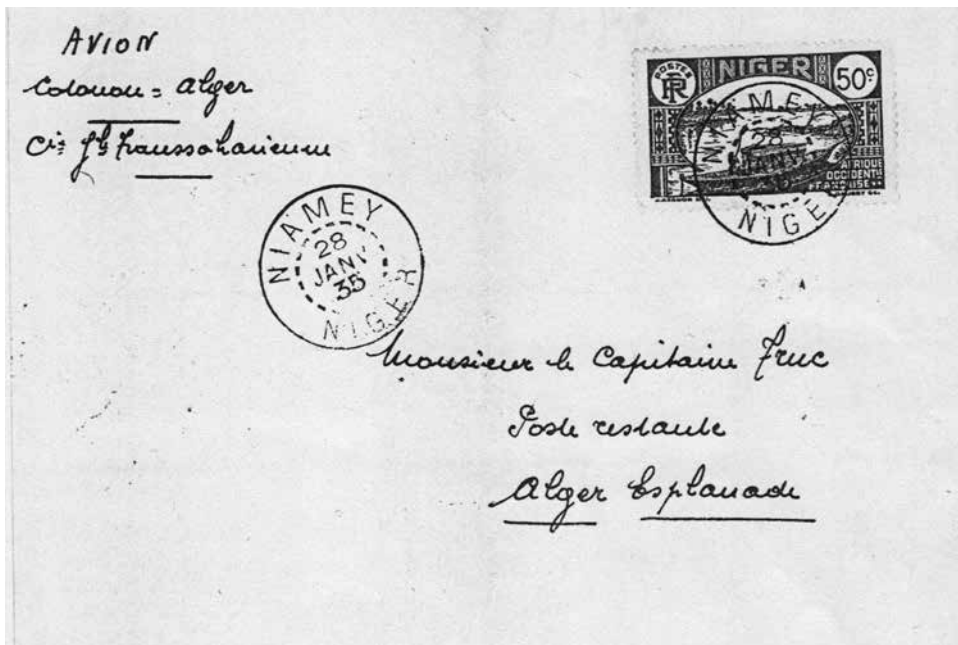 AVION
Cotonou = Alger
Cie Gle Transsaharienne
POSTES
RF
NIGER
50c
AFRIQUE
OCCIDENTLE
FRANÇAISE
NIAMEY
28
JANV
NIGER
NIAMEY
28
JANV
35
NIGER
Monsieur le Capitaine Truc
Poste restante
Alger Esplanade